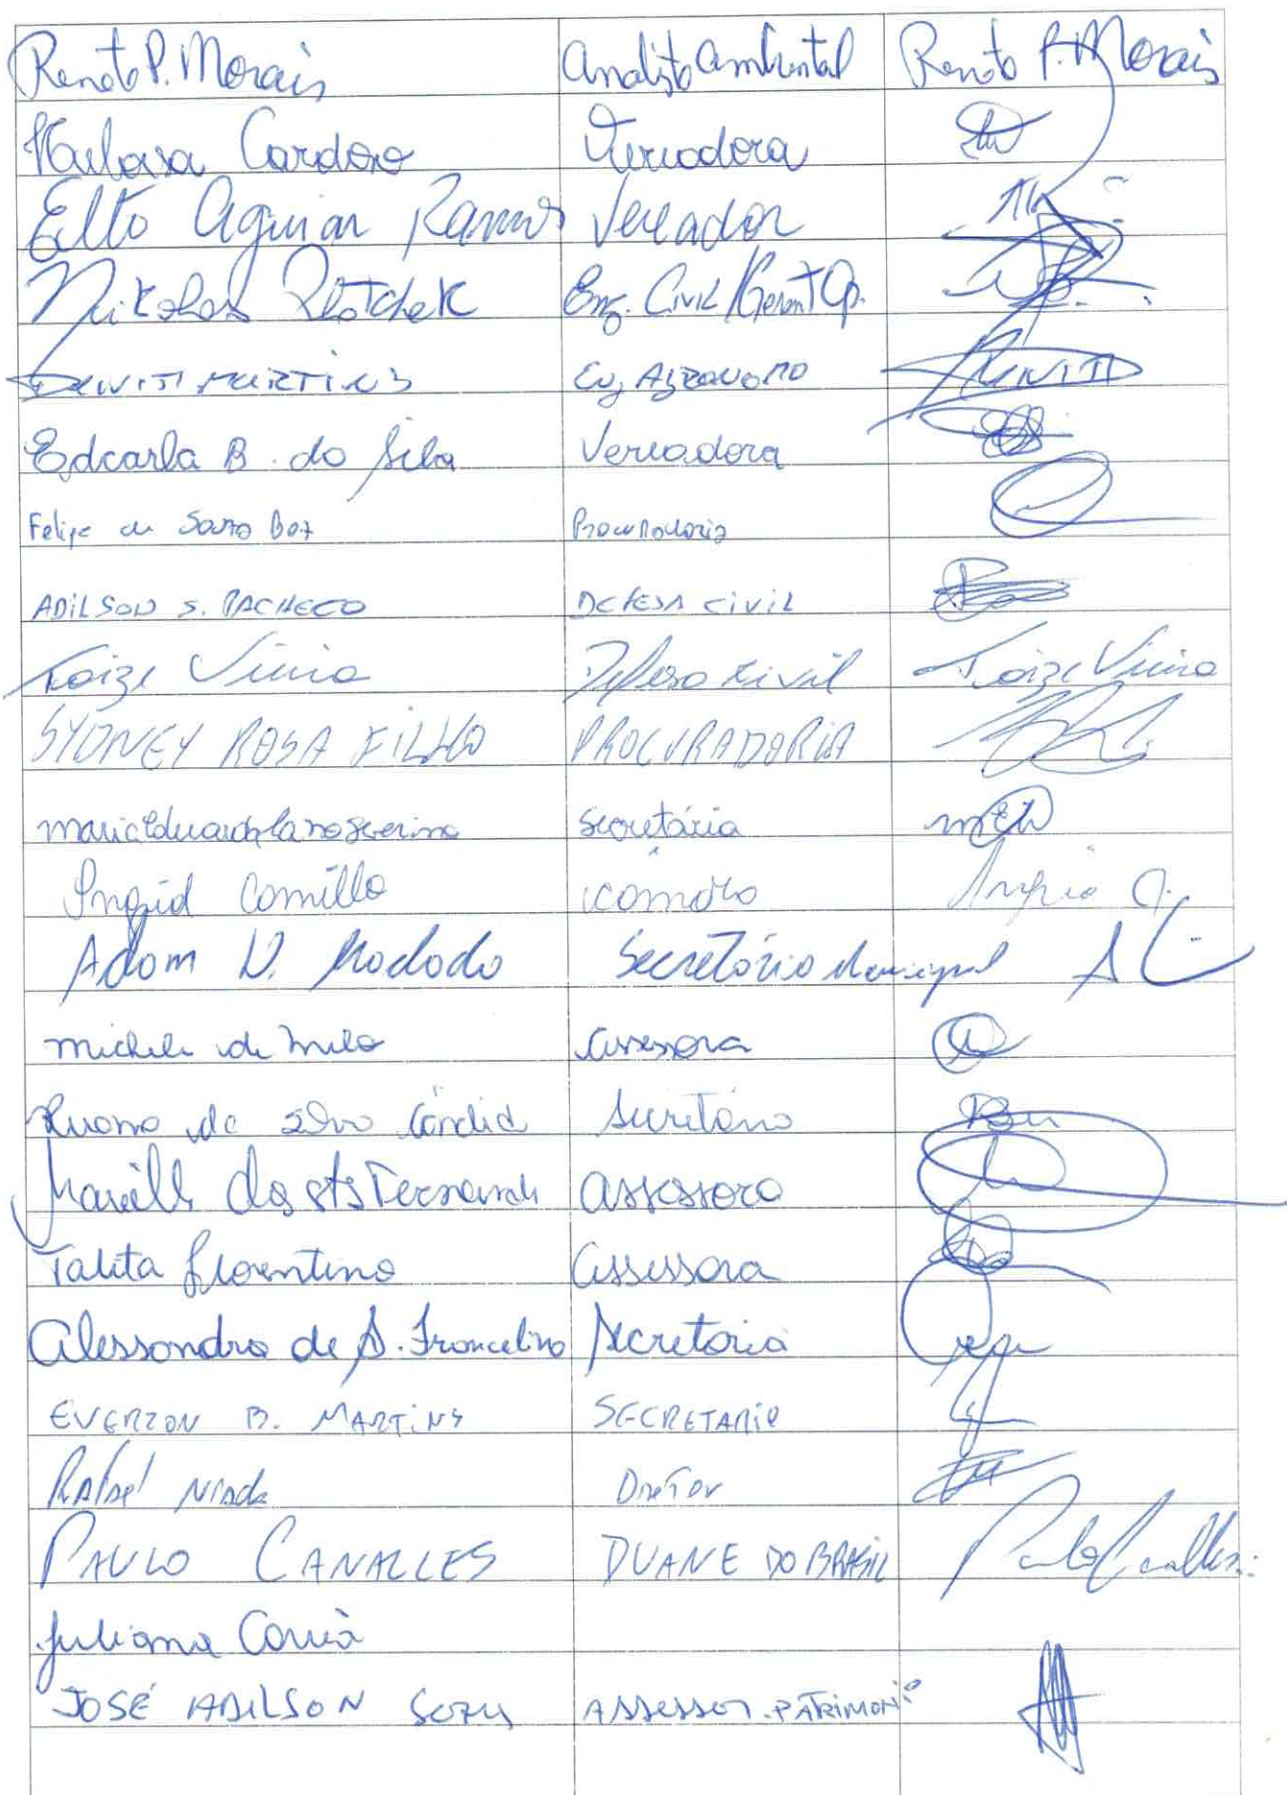 Renato P. Morais Analista Ambiental Renato P. Morais
Heloisa Cardoso Vereadora
Elto Aguiar Ramos Vereador
Nikolas Eng. Civil/Gerent Op.
MARTINS Eng Agronomo
Edcarla B. da Silva Vereadora
Felipe de Souza Procuradoria
ADILSON S. PACHECO DEFESA CIVIL
Taize Vieira Defesa Civil Taize Vieira
SYDNEY ROSA FILHO PROCURADORIA
Maria Eduarda Secretária
Ingrid Camillo Ingrid C.
Adam Machado Secretário Municipal
Michele de Melo Assessora
Ruana da Silva Cândid Secretário
dos Sts Fernands Assessora
Talita Florentino Assessora
Alessandra de S. Francelino Secretaria
EVERZON B. MARTINS SECRETARIO
Rafael Diretor
PAULO CANALLES DUANE DO BRASIL
Juliana Corrêa
JOSÉ ADILSON Assessor.PATRIMONI